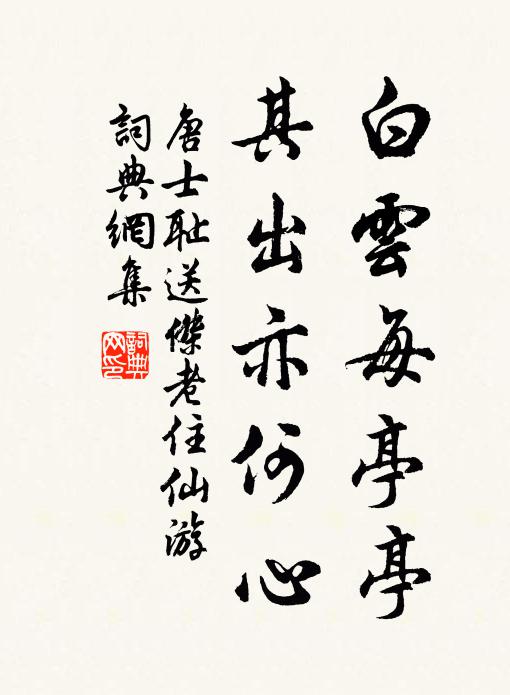 白雲每亭亭
其出亦何心
唐士耻送傑老住仙游
詞典網集
詞典網印